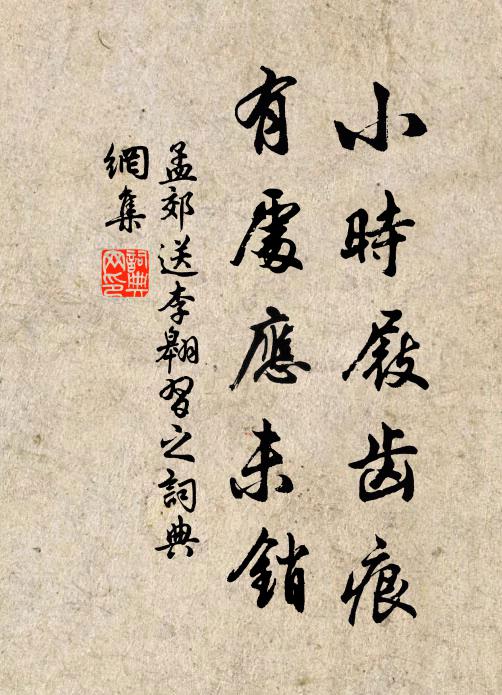 小時屐齒痕
有處應未銷
孟郊送李翱習之詞典
網集
詞典網印